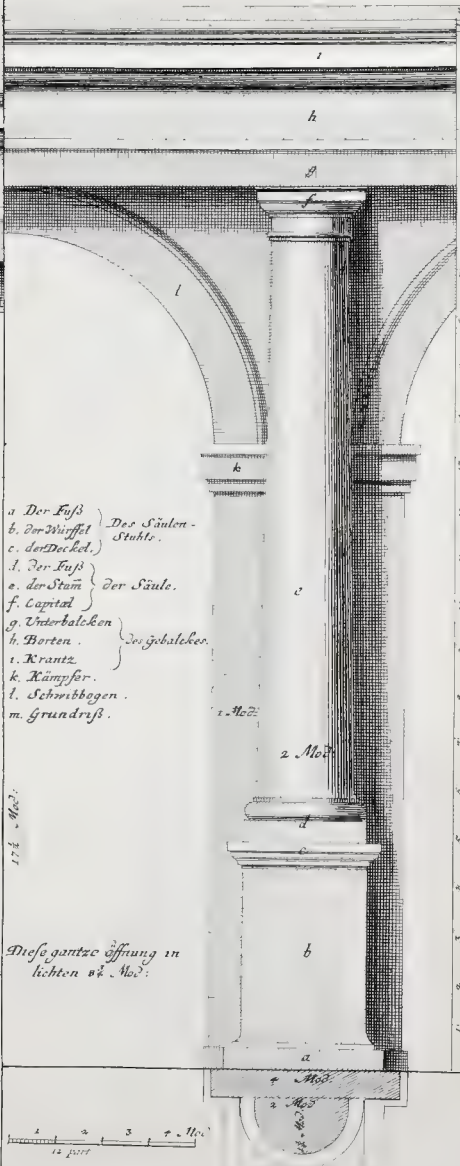 i
h
g
f
l
k
a Der Fuß
b. der Würffel
c. der Deckel.
Des Säulen-
Stuhls.
d. Der Fuß
e. der Stam̄
f. Capitæl
der Säule.
g. Unterbalcken
h. Borten.
i. Krantz
des gebalckes.
k. Kämpfer.
l. Schwibbogen.
m. Grundriß.
e
1 Mod:
2 Mod:
d
c
Mod:
Diese gantze öffnung in
lichten Mod:
b
a
4 Mod.
2 Mod
1 2 3 4 Mod
12 part